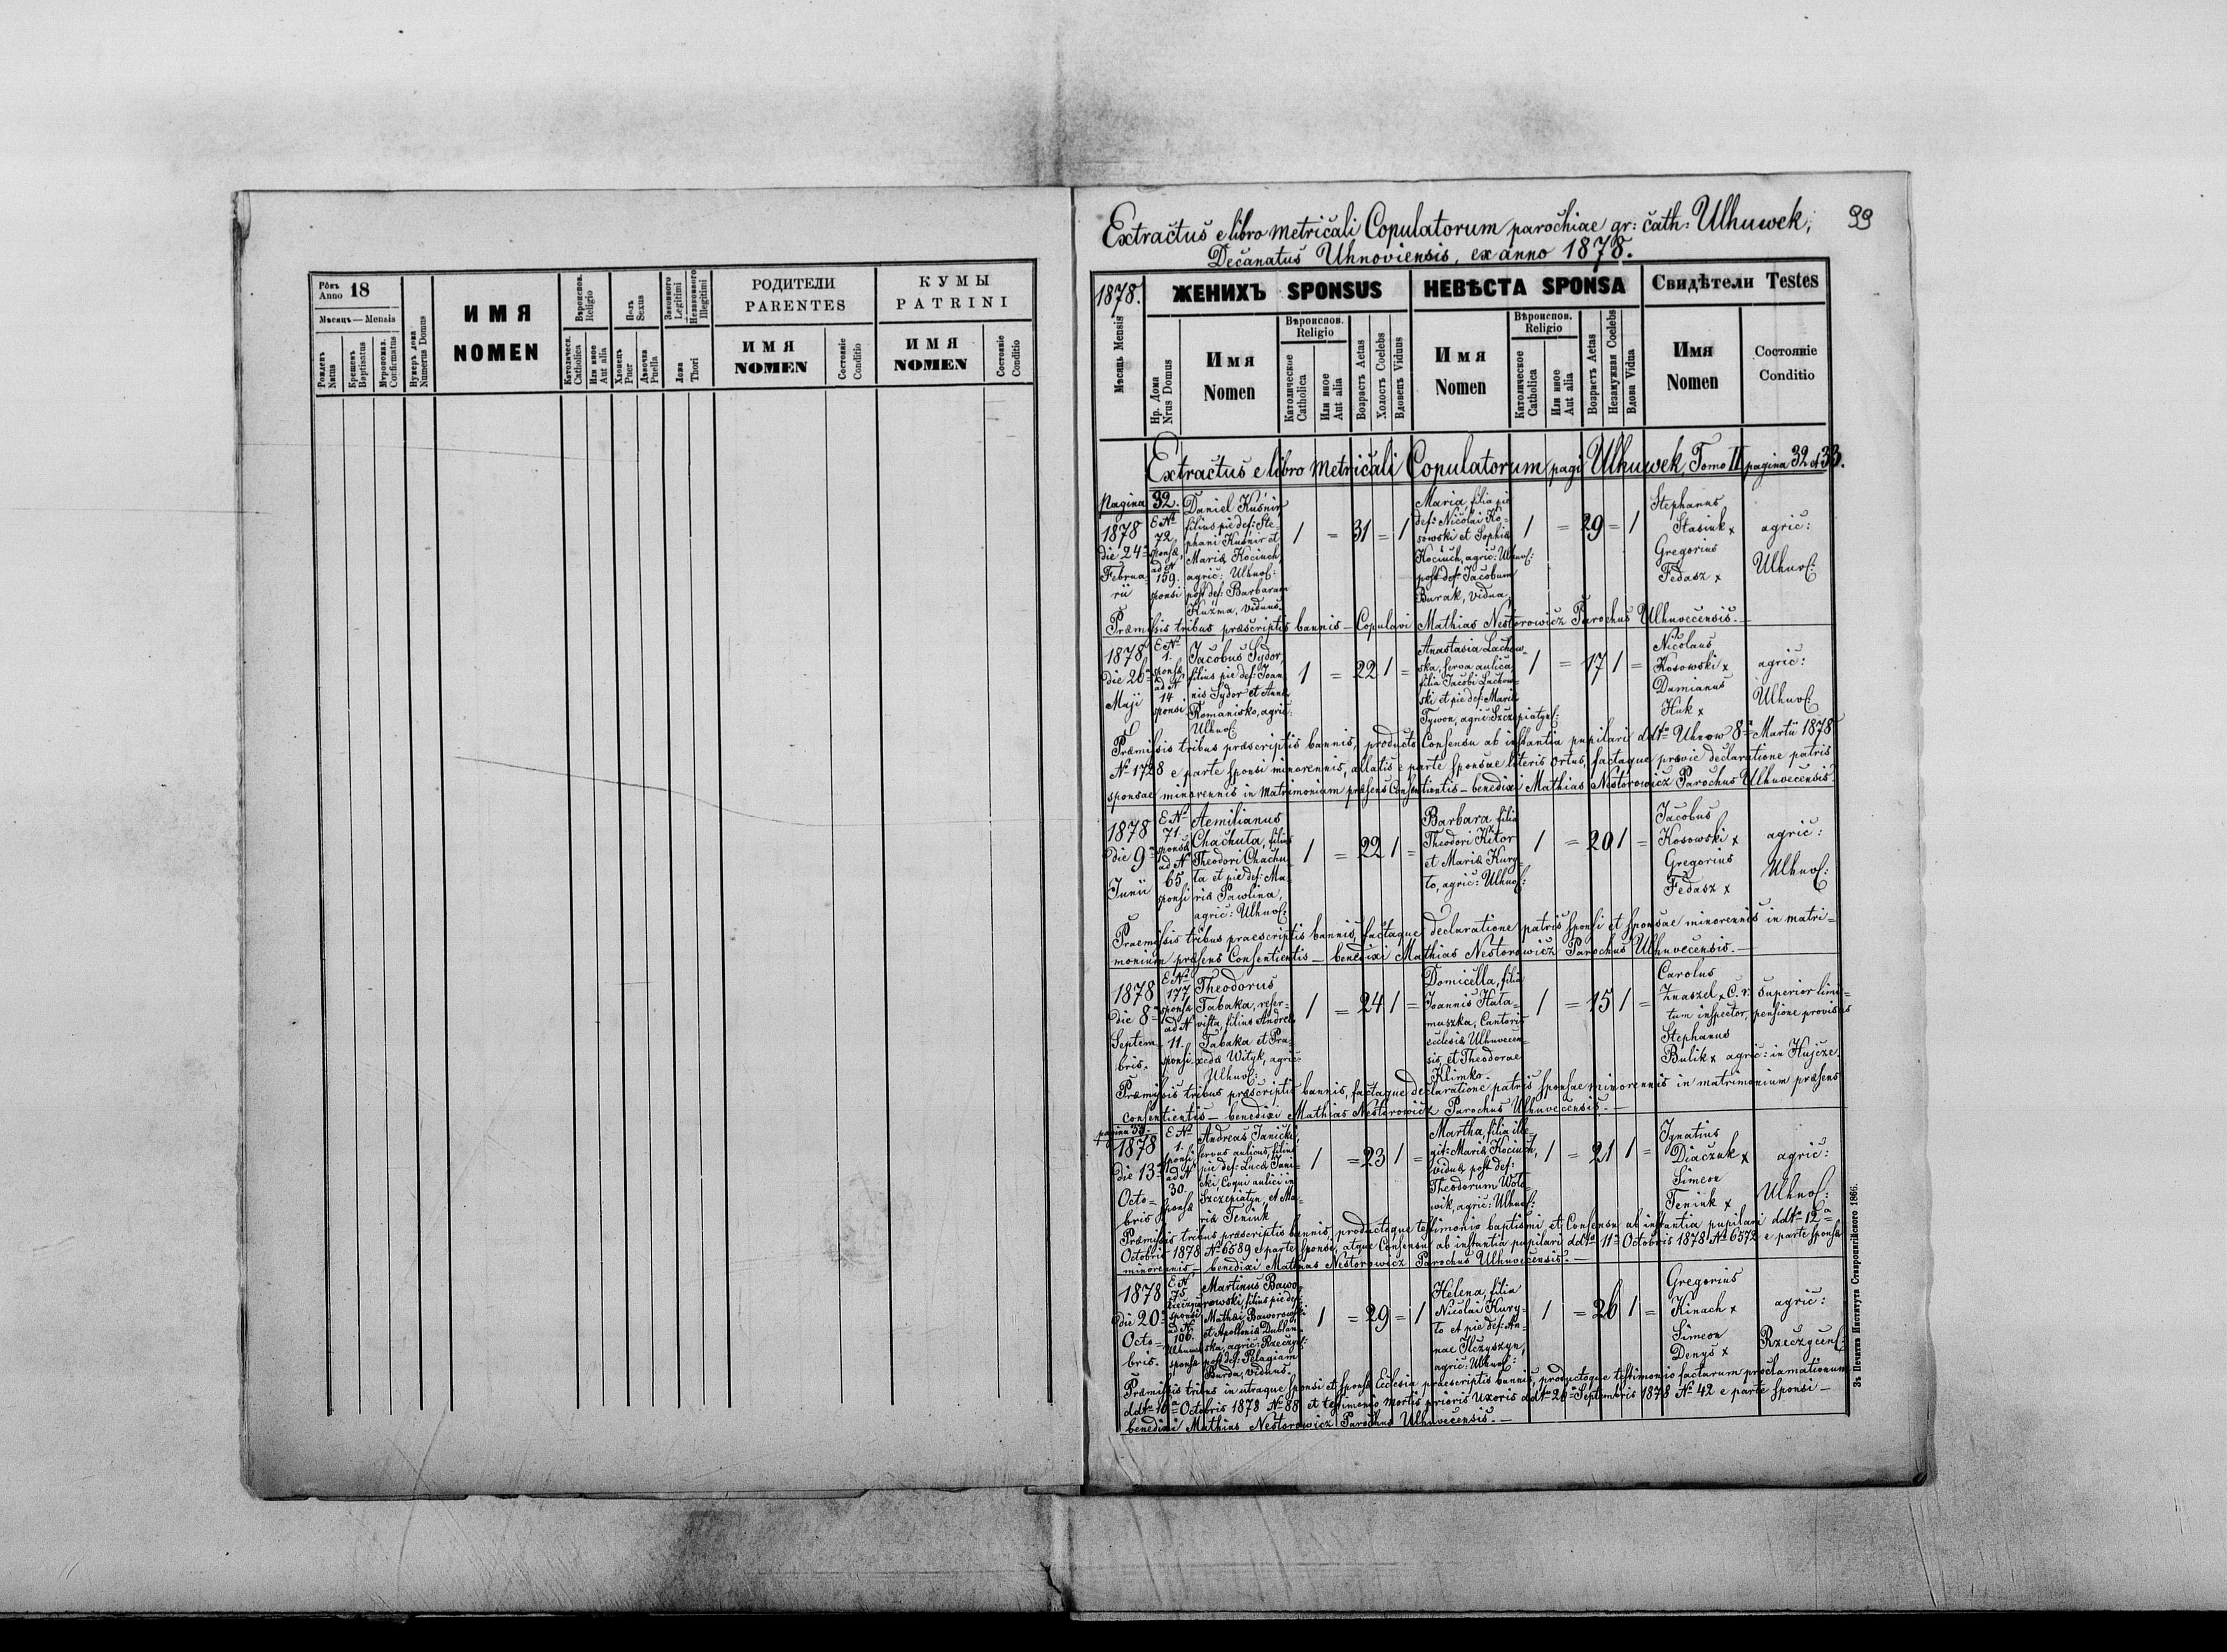 Extractus e libro metricali Copulatorum parochiae gr: cath: Ulhuwek,
99
Decanatus Uhnoviensis, ex anno 1878.
Рôкъ Anno 18
Мѣсяць — Mensis
Рожденъ Natus
Крещенъ Baptisatus
Мѵропомаз. Confirmatus
Нумеръ дома Numerus Domus
ИМЯ
NOMEN
Вѣроиспов. Religio
Католическ. Catholica
Или иное Aut alia
Полъ Sexus
Хлопецъ Puer
Дѣвочка Puella
Законного Legitimi
Незаконного Illegitimi
Ложа Thori
РОДИТЕЛИ
PARENTES
ИМЯ
NOMEN
Состояніе Conditio
КУМЫ
PATRINI
ИМЯ
NOMEN
Состояніе Conditio
1878.
Мѣсяць Mensis
ЖЕНИХЪ SPONSUS
Нр. Дома Nrus Domus
Имя
Nomen
Вѣроиспов. Religio
Католическое Catholica
Или иное Aut alia
Возрастъ Aetas
Холостъ Coelebs
Вдовецъ Viduus
НЕВѢСТА SPONSA
Имя
Nomen
Вѣроиспов. Religio
Католическое Catholica
Или иное Aut alia
Возрастъ Aetas
Незамужная Coelebs
Вдова Vidua
Свидѣтели Testes
Имя
Nomen
Состояніе
Conditio
Extractus e libro metricali Copulatorum pagi Ulhuwek, Tomo II pagina 32 et 33.
Pagina 32.
1878
die 24a
Februa
rii
E No
72
sponsæ
ad N
159.
sponsi
Daniel Kuśnir
filius pie def: Ste-
phani Kuśnir et
Mariæ Kociuch,
agric: Ulhuv:
post def: Barbaram
Kuzma, viduus
1 = 31 = 1
Maria, filia pie
def: Nicolai Ko-
sowski et Sophiæ
Kociuch, agric: Ulhuv:
post def: Jacobum
Burak, vidua
1 = 29 = 1
Stephanus
Stasiuk x
Gregorius
Fedasz x
agric:
Ulhuv:
Præmissis tribus præscriptis bannis – Copulavi Mathias Nestorowicz Parochus Ulhuvecensis. –
1878
die 26a
Maji
E No
1.
sponsæ
ad N
14
sponsi
Jacobus Sydor,
filius pie def: Joan-
nis Sydor et Annæ
Romanisko, agric:
Ulhuv:
1 = 22 1 =
Anastasia Lachow-
ska, serva aulica,
filia Jacobi Lachow-
ski et pie def: Mariæ
Tywon, agric: Szczepiatyn:
1 = 17 1 =
Nicolaus
Kosowski x
Damianus
Huk x
agric:
Ulhuv:
Præmissis tribus præscriptis bannis, producto Consensu ab instantia pupilari ddto Uhnow 8a Martii 1878
No 1728 e parte sponsi minorennis, allatis e parte sponsae literis ortus, factaque prævie declaratione patris
sponsae minorennis in Matrimonium præsens Consentientis – benedixi Mathias Nestorowicz Parochus Ulhuvecensis.
1878
die 9a
Junii
E No
71
sponsæ
ad N
65
sponsi
Aemilianus
Chachuta, filius
Theodori Chachu
ta et pie def: Ma-
riæ Pawlina,
agric: Ulhuv:
1 = 22 1 =
Barbara filia
Theodori Kitor
et Mariæ Kury-
to, agric: Ulhuv:
1 = 20 1 =
Jacobus
Kosowski x
Gregorius
Fedasz x
agric:
Ulhuv:
Praemissis tribus praescriptis bannis, factaque declaratione patris sponsi et sponsae minorennis in matri=
monium præsens Consentientis – benedixi Mathias Nestorowicz Parochus Ulhuvecensis. –
1878
die 8a
Septem
bris.
E No
177
sponsæ
ad N
11.
sponsi
Theodorus
Tabaka, reser-
vista, filius Andreæ
Tabaka et Pra-
xedæ Wityk, agric:
Ulhuv:
1 = 24 1 =
Domicella, filia
Joannis Hata-
muszka, Cantoris
ecclesiæ Ulhuvecen-
sis, et Theodorae
Klimko.
1 = 15 1 =
Carolus
Znaszel x C. r: superior limi-
tum inspector, pensione provisus
Stephanus
Bulik x agric: in Hujcze.
Præmissis tribus præscriptis bannis, factaque declaratione patris sponsae minorennis in matrimonium præsens
consentientis – benedixi Mathias Nestorowicz Parochus Ulhuvecensis. –
pagina 33.
1878
die 13a
Octo=
bris
E No
1.
sponsi,
ad N
30.
sponsæ
Andreas Janicki,
servus aulicus, filius
pie def: Lucæ Jani-
cki, Coqui aulici in
Szczepiatyn, et Ma-
riæ Teniuk
1 = 23 1 =
Martha, filia ille-
git: Mariæ Kociuch,
viduæ post def:
Theodorum Woto-
wik, agric: Ulhuv:
1 = 21 1 =
Ignatius
Diaczuk x
Simeon
Teniuk x
agric:
Ulhuv:
Præmissis tribus præscriptis bannis, productoque testimonio baptismi et Consensu ab instantia pupilari ddto 12a
Octobris 1878 No 6589 e parte sponsi, atque Consensu ab instantia pupilari ddto 11a Octobris 1878 No 6572 e parte sponsæ
minorennis – benedixi Mathias Nestorowicz Parochus Ulhuvecensis. –
1878
die 20a
Octo=
bris.
E N
75
sponsi
ad N
106.
Ulhuwek
sponsæ
Martinus Bawo-
rowski, filius pie def:
Mathæi Baworowski
et Apolloniæ Dublan-
ska, agric: Rzeczyc:
post def: Pelagiam
Burda, viduus.
1 = 29 = 1
Helena, filia
Nicolai Kury-
to et pie def: An-
nae Ilczyszyn,
agric: Ulhuv:
1 = 26 1 =
Gregorius
Kinach x
Simeon
Denys x
agric:
Rzeczycens:
Præmissis tribus in utraque sponsi et sponsæ Ecclesia praescriptis bannis, productoque testimonio factarum proclamationum
ddto 10a Octobris 1878 No 88 et testimonio mortis prioris uxoris ddto 20a Septembris 1878 No 42 e parte sponsi –
benedixi Mathias Nestorowicz Parochus Ulhuvecensis. –
Зъ Печатни Института Ставропигійского 1866.